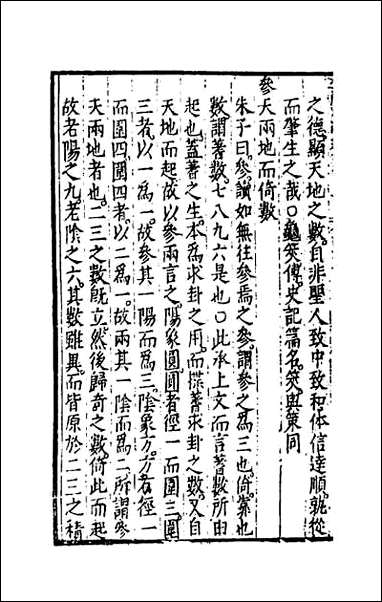 之德顯天地之數自非聖人致中致和体信達順孰從
而肇生之哉○龜筴傳史記篇名筴與策同
參天兩地而倚數
朱子曰參讀如無往參焉之參謂參之為三也倚蔂也
數謂蓍數七八九六是也○此承上文而言蓍數所由
起也蓋蓍之生本為求卦之用而揲蓍求卦之數又自
天地而起故以參兩言之陽象圓圓者徑一而圍三圍
三者以一為一故參其一陽而為三陰象方方者徑一
而圍四圍四者以二為一故兩其一陰而為二所謂參
天兩地者也二三之數旣立然後歸奇之數倚此而起
故老陽之九老陰之六其數雖異而皆原於二三之積